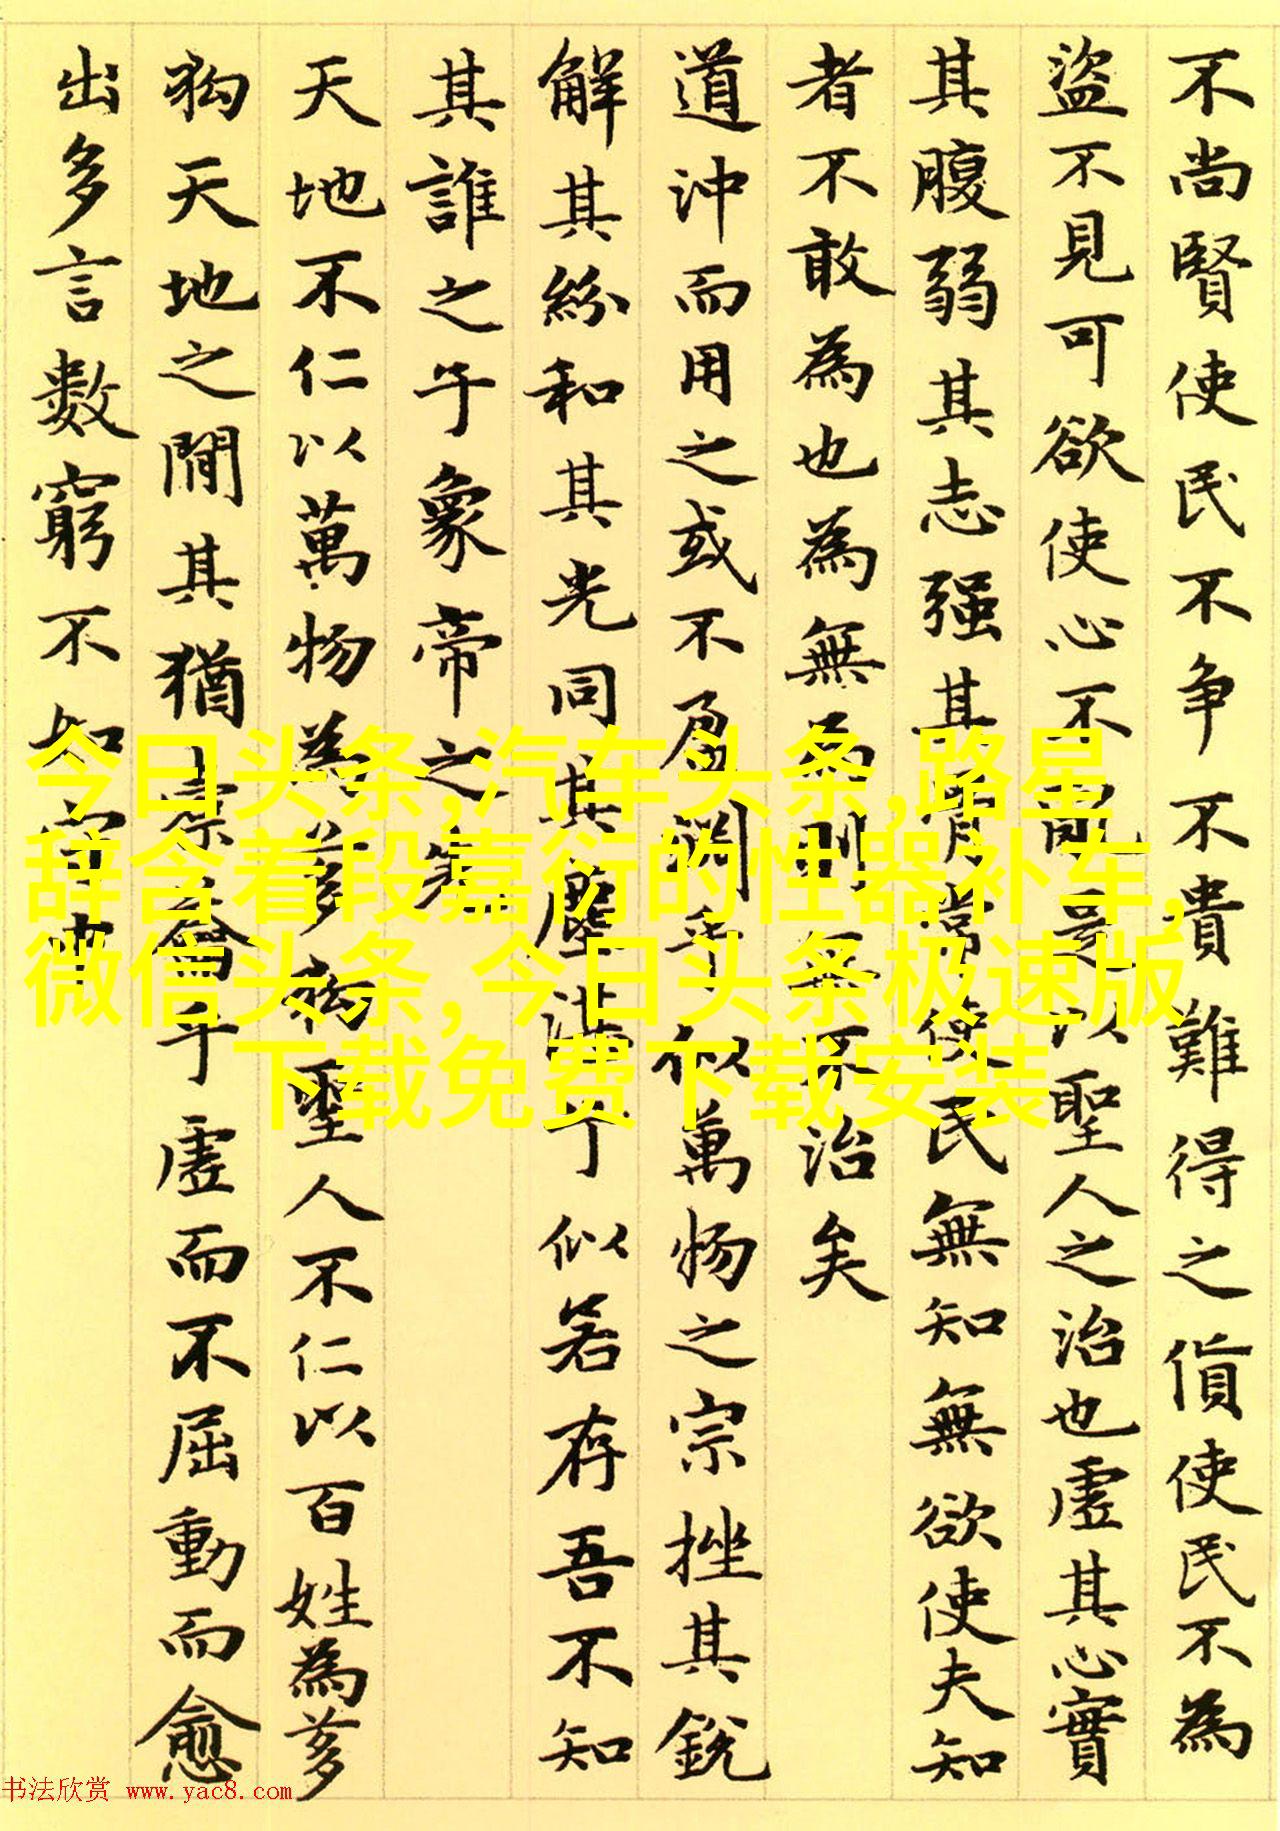 不尚賢使民不争不貴難得之貨使民不為
盜不見可欲使心不亂是以聖人之治也虛其心實
其腹弱其志强其骨常使民無知無欲使夫知
者不敢為也為無為則無不治矣
道沖而用之或不盈淵乎似萬物之宗挫其銳
解其紛和其光同其塵湛兮似若存吾不知
其誰之子象帝之先
天地不仁以萬物為芻狗聖人不仁以百姓為芻
狗天地之間其猶橐籥乎虛而不屈動而愈
出多言數窮不如守中
今日头条,汽车头条,路星
辞含着段嘉衍的性器补车,
微信头条,今日头条极速版
下载免费下载安装
书法欣赏 www.yac8.com